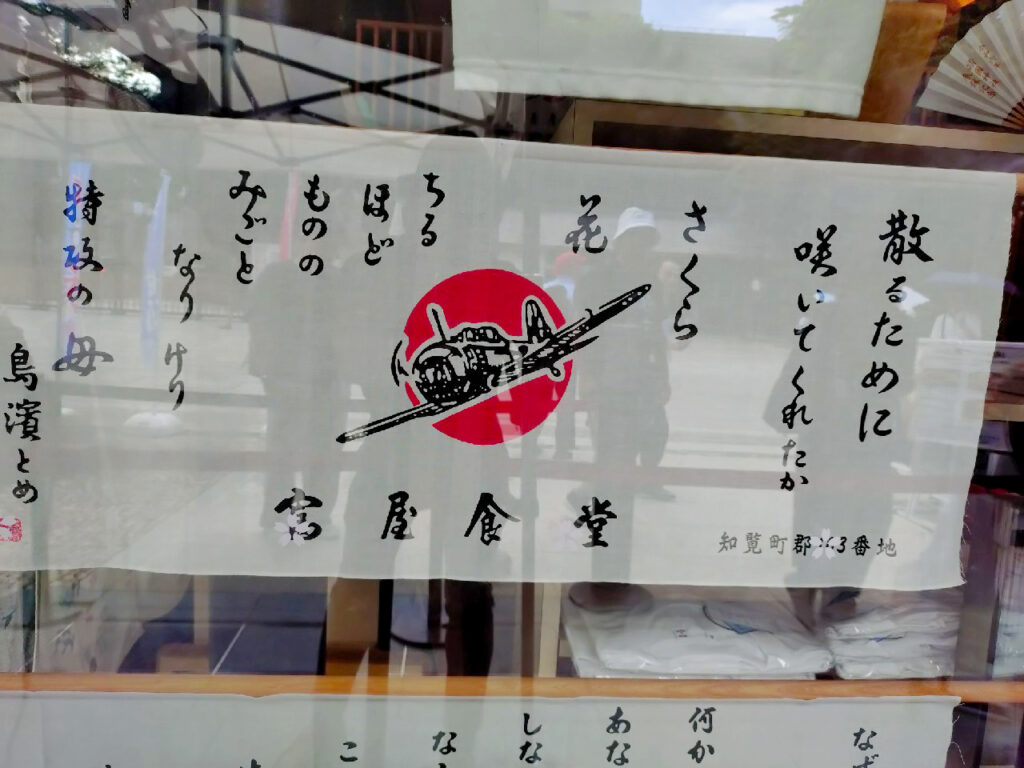 散るために
咲いてくれたか
さくら
花
ちる
ほど
ものの
みごと
なりけり
特攻の母
鳥濱とめ
富屋食堂
知覧町郡
3番地
なぜ
何か
あな
しな
な
こ